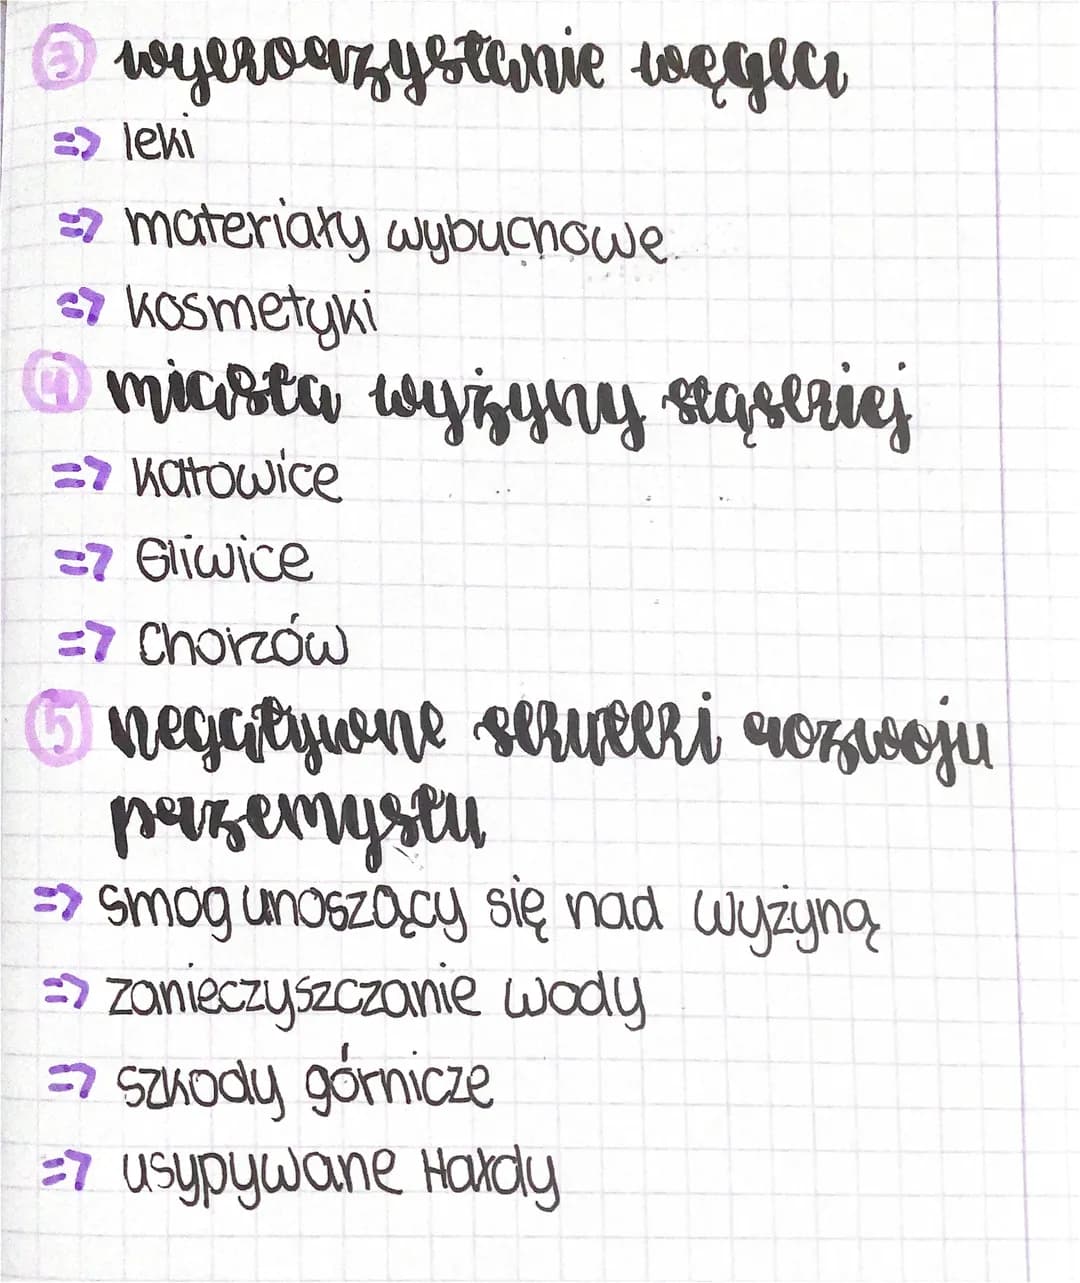 3 wykorzystanie węgla
=> leki
=> materiały wybuchowe
=> kosmetyki
4 miasta wyżyny śląskiej
=> Katowice
=> Gliwice
=> Chorzów
5 negatywne skutki rozwoju
przemysłu
=> smog unoszący się nad wyżyną
=> zanieczyszczanie wody
=> szkody górnicze
=> usypywane Hałdy